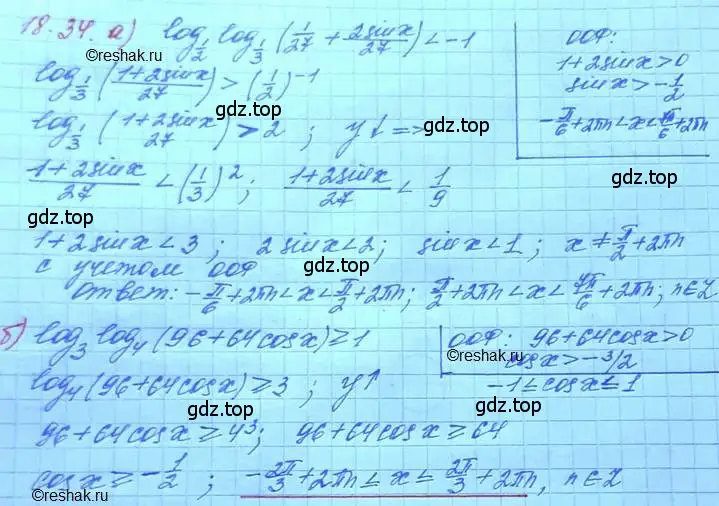 18.34. а) log_{1/2} log_{1/3} (1/27 + 2sinx/27) < -1
ООФ:
1+2sinx>0
sinx>-1/2
-π/6+2πn<x<7π/6+2πn
©reshak.ru
log_{1/3} ((1+2sinx)/27) > (1/2)^{-1}
gdz.top
log_{1/3} ((1+2sinx)/27) > 2 ; y↓ =>
gdz.top
(1+2sinx)/27 < (1/3)^2 ; (1+2sinx)/27 < 1/9
gdz.top
gdz.top
1+2sinx<3 ; 2sinx<2 ; sinx<1 ; x≠π/2+2πn
с учетом ООФ
gdz.top
ответ: -π/6+2πn<x<π/2+2πn; π/2+2πn<x<7π/6+2πn; n∈Z
б) log_3 log_4 (96+64cosx)≥1
ООФ: 96+64cosx>0
cosx>-3/2
-1≤cosx≤1
©reshak.ru
©reshak.ru
log_4 (96+64cosx)≥3 ; y↑
gdz.top
gdz.top
96+64cosx≥4^3; 96+64cosx≥64
cosx≥-1/2 ; -2π/3+2πn≤x≤2π/3+2πn, n∈Z
gdz.top
©reshak.ru
©reshak.ru